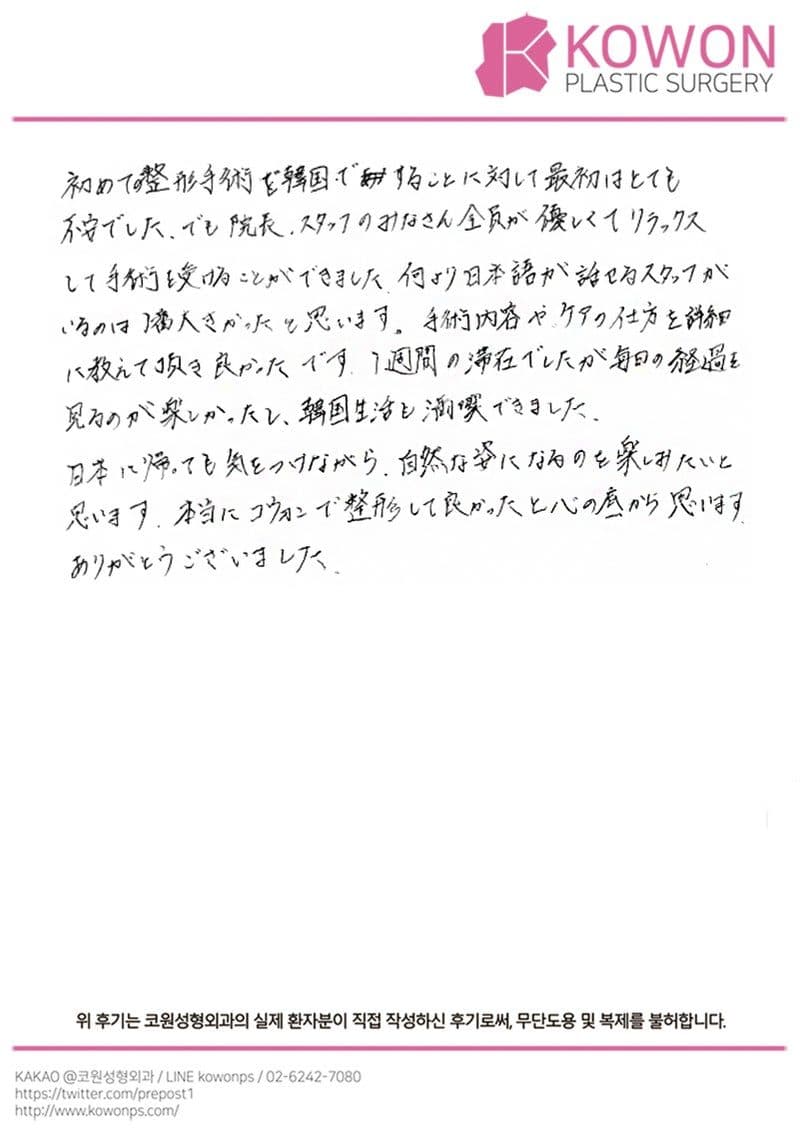 KOWON
PLASTIC SURGERY
初めての整形手術を韓国ですることに対して最初はとても
不安でした、でも院長、スタッフのみなさん全員が優しくてリラックス
して手術を受けることができました。何より日本語が話せるスタッフが
いるのは1番大きかったと思います。手術内容や、ケアの仕方を詳細
に教えて頂き良かったです。1週間の滞在でしたが毎日の経過を
見るのが楽しかったし、韓国生活も満喫できました。
日本に帰っても気をつけながら、自然な姿になるのを楽しみたいと
思います。本当にコウォンで整形して良かったと心の底から思います。
ありがとうございました。
위 후기는 코원성형외과의 실제 환자분이 직접 작성하신 후기로써, 무단도용 및 복제를 불허합니다.
KAKAO @코원성형외과 / LINE kowonps / 02-6242-7080
https://twitter.com/prepost1
http://www.kowonps.com/